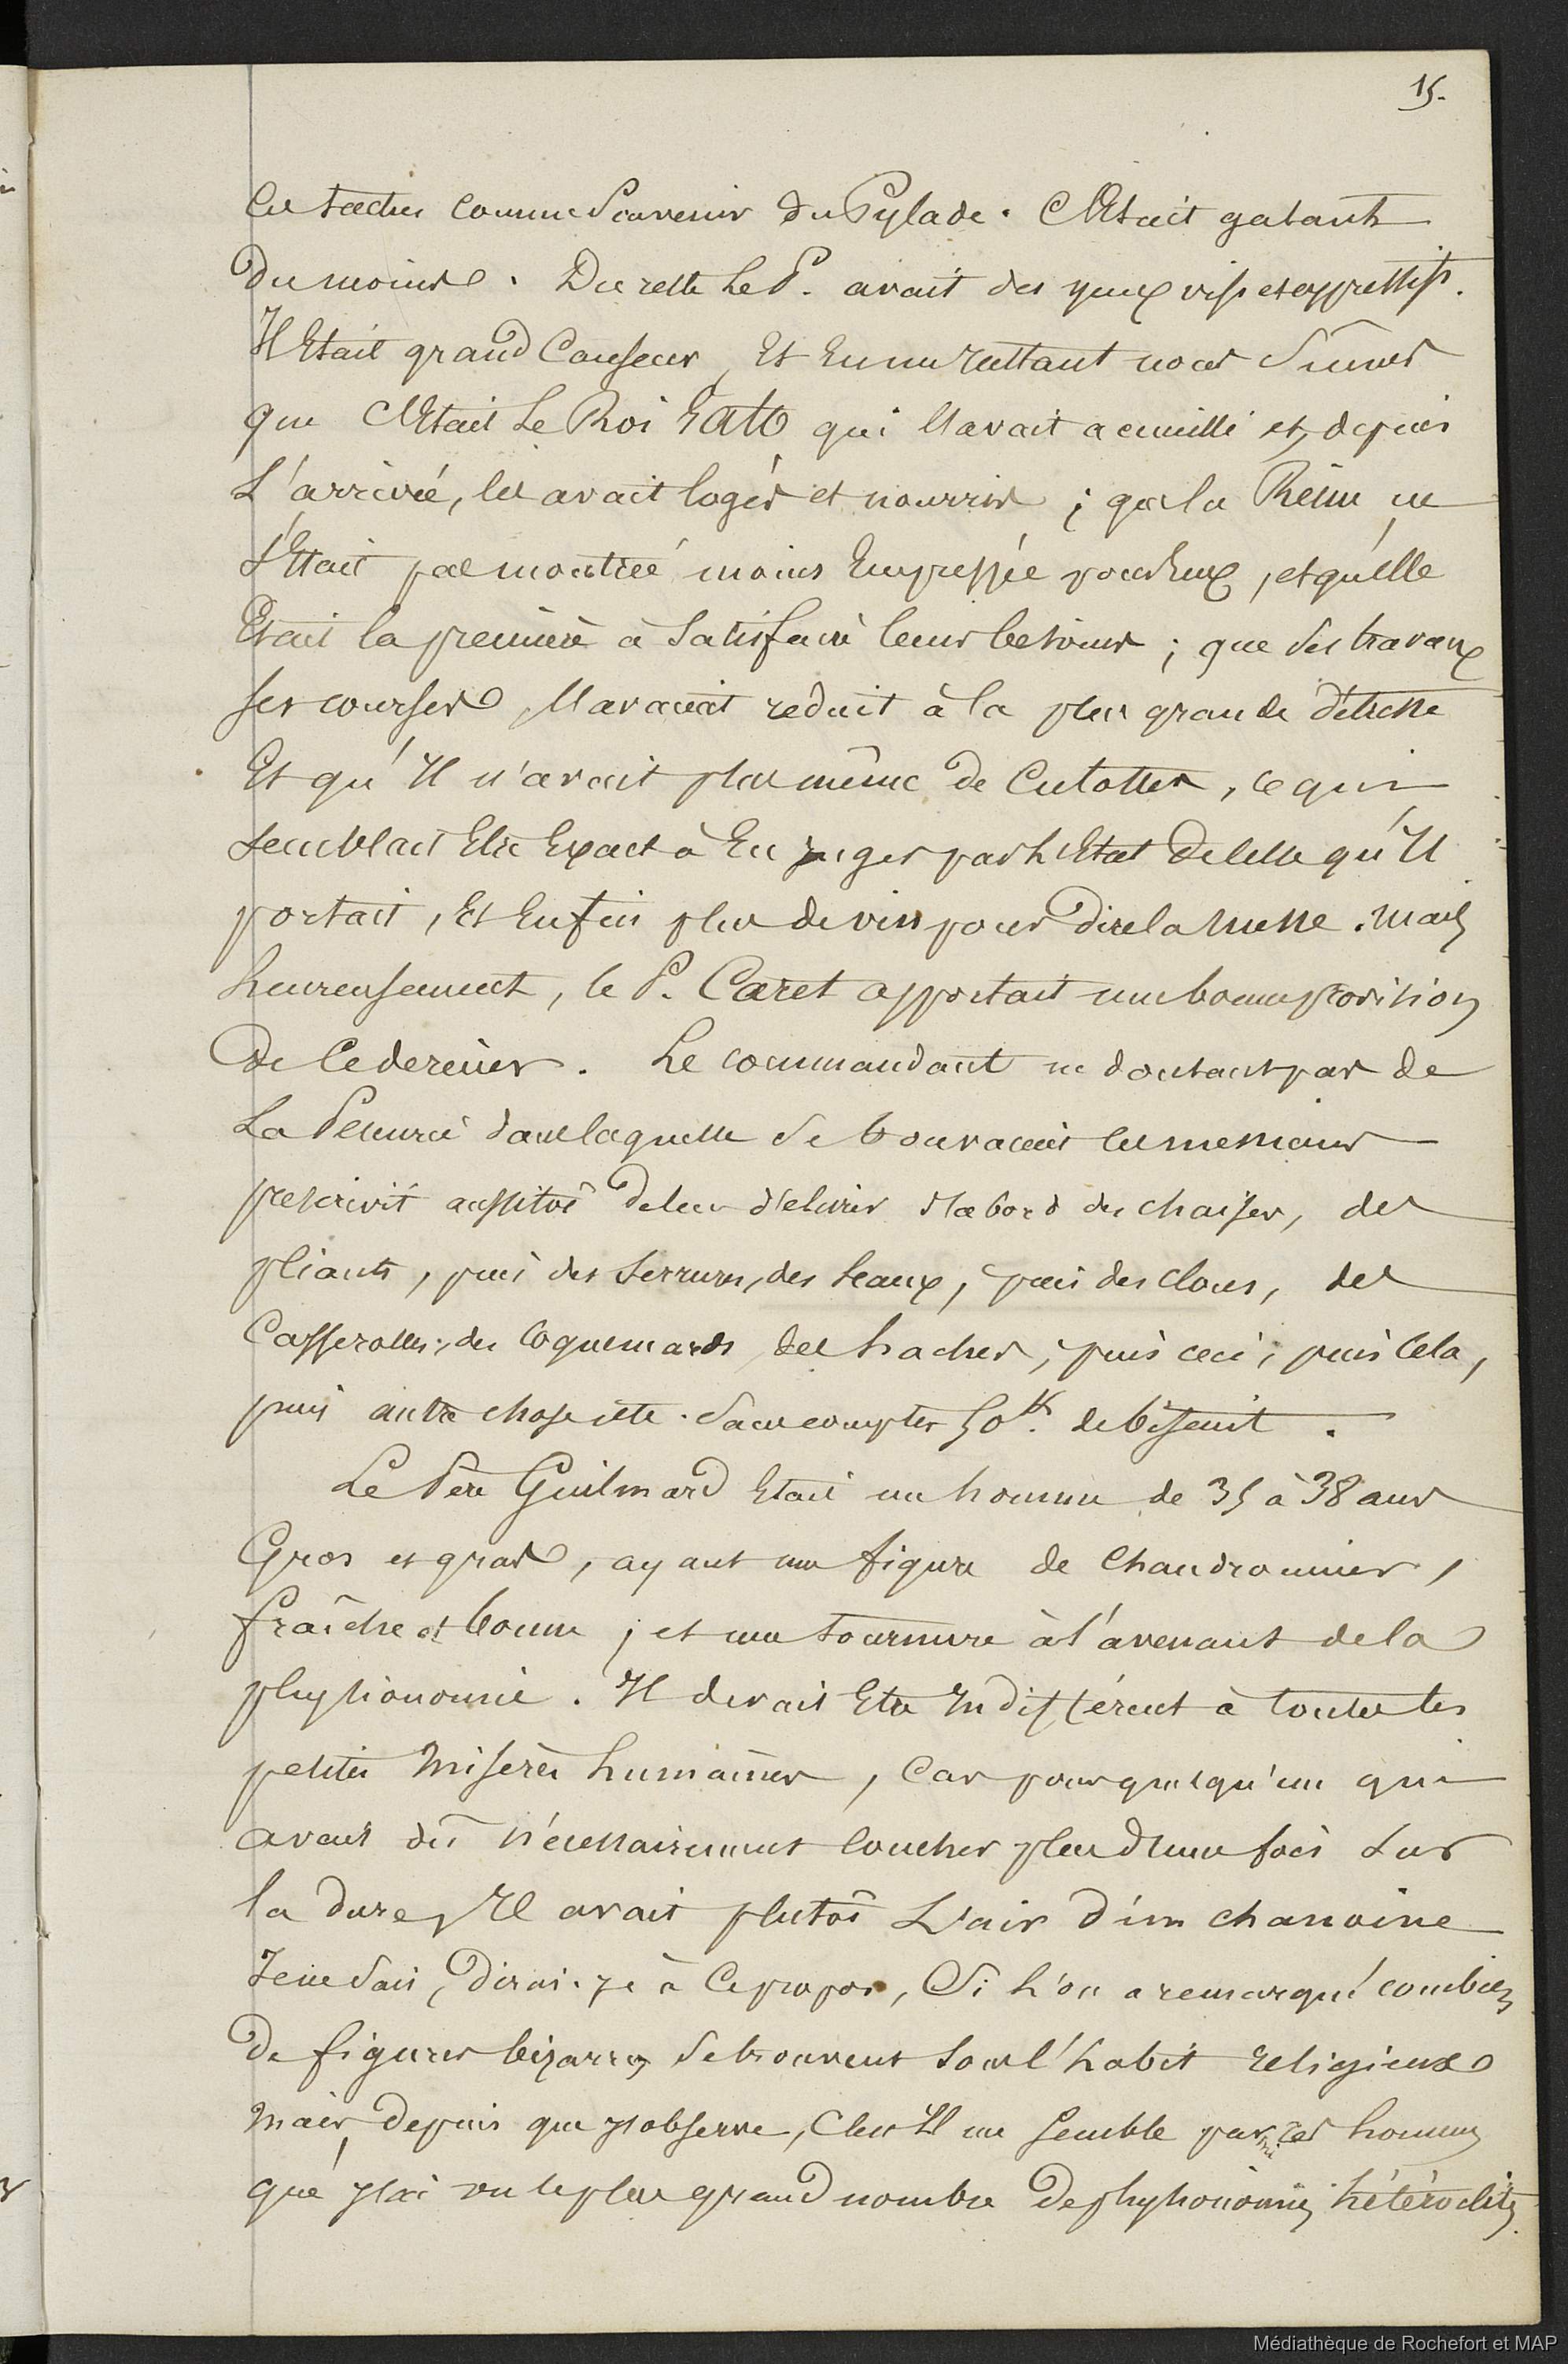 15.
Ces taches comme Souvenir du Pylade. C'Etait galant
du moins. Du reste Le P. avait des yeux vifs et expressifs.
Il Etait grand Causeur, Et En nous quittant nous Sûmes
que C'Etait Le Roi Iatt qui l'avait accueilli et, depuis
L'arrivée, les avait logés et nourris ; que la Reine ne
s'Etait pas montrée moins Empressée pour Eux, et qu'Elle
Etait la première à Satisfaire leurs besoins ; que Ses travaux
Ses courses, l'avaient réduit à la plus grande détresse
Et qu'Il n'avait plus même de Culottes, ce qui
semblait Etre Exact à En juger par L'Etat de celle qu'Il
portait, Et Enfin plus de vin pour dire la Messe. Mais
heureusement, le P. Caret apportait une bonne provision
de Ce dernier. Le commandant ne doutant pas de
La Pénurie dans laquelle Se trouvaient ces messieurs
prescrivit aussitôt de leur délivrer d'abord des chaises, des
pliants, puis des Serrures, des Seaux, puis des clous, des
Casserolles, des Coquemards, des haches, puis ceci, puis Cela,
puis autre chose etc. Sans compter 50 k. de biscuit.
Le Père Guilmard Etait un homme de 35 à 38 ans
Gros et gras, ayant une figure de Chaudronnier,
fraîche et bonne ; et une tournure à l'avenant de la
physionomie. Il devait Etre Indifférent à toutes les
petites Misères humaines, Car pour quelqu'un qui
avait dû nécessairement Coucher plus d'une fois Sur
la dure, Il avait plutôt L'air d'un chanoine
Je ne Sais, dirai-je à Ce propos, Si L'on a remarqué combien
de figures bizarres Se trouvent Sous l'habit religieux
Mais, depuis que j'observe, C'est Il me Semble parmi ces hommes
que j'ai vu le plus grand nombre de physionomies hétéroclites.
Médiathèque de Rochefort et MAP